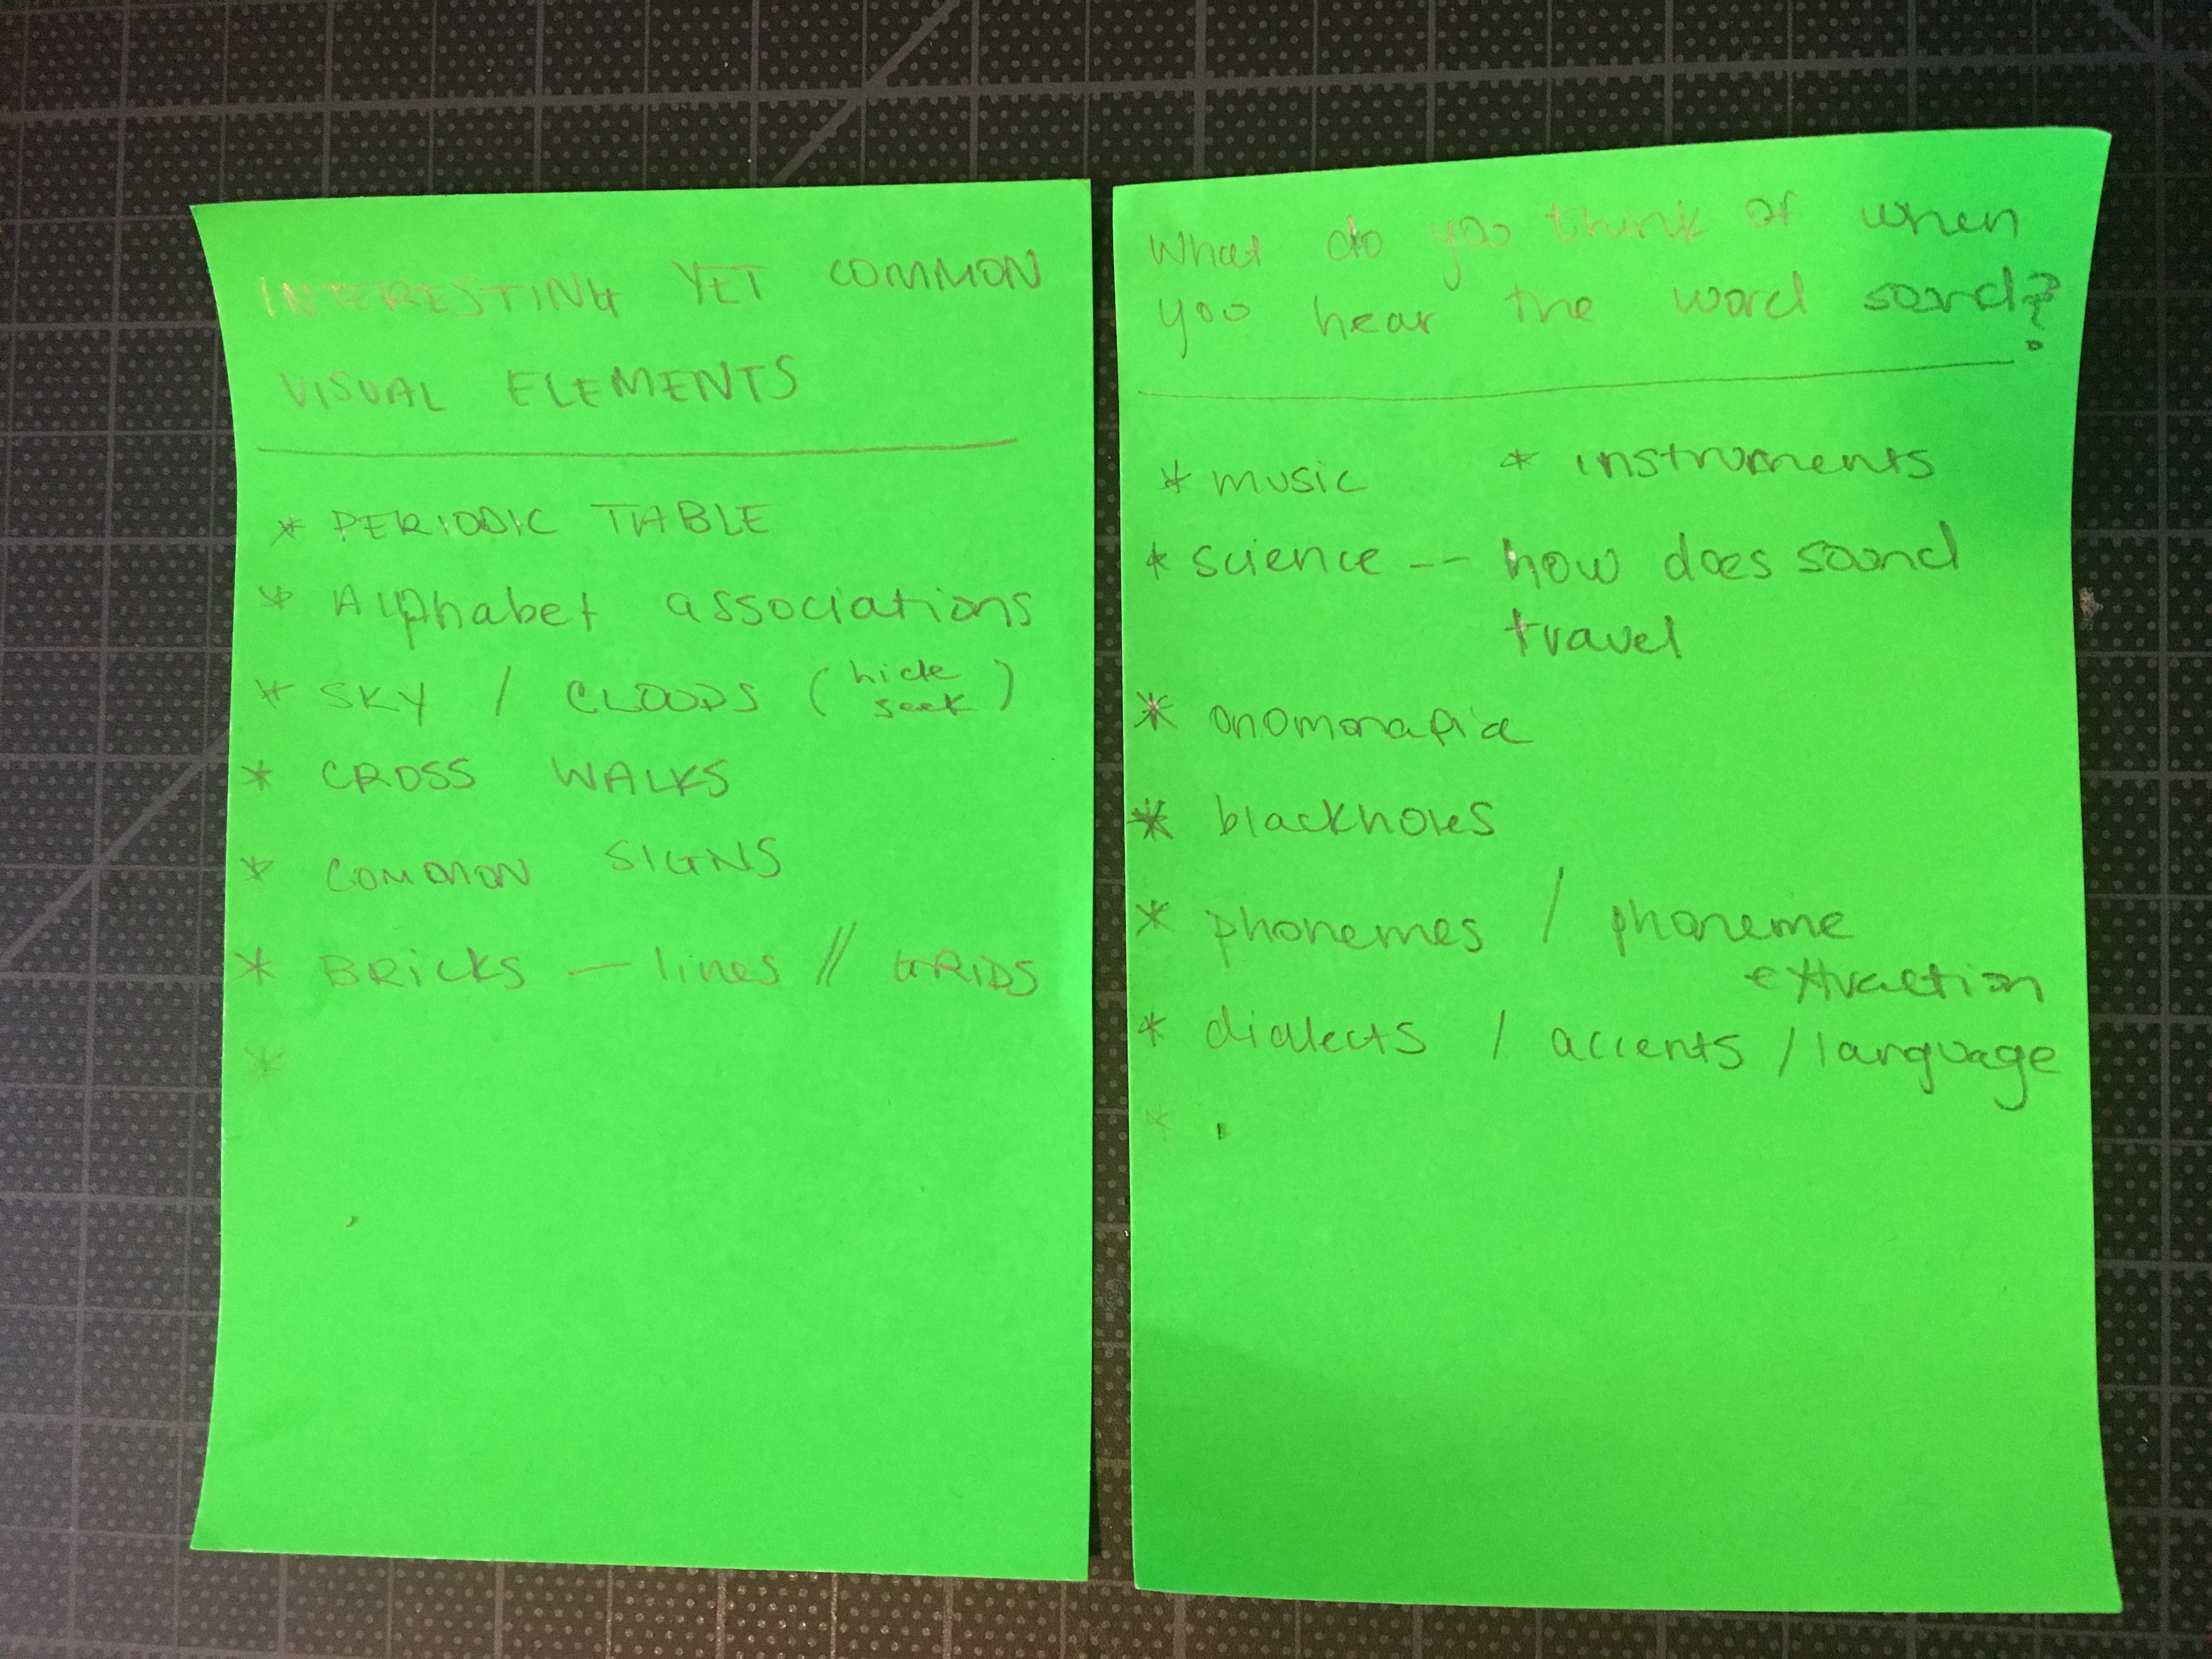 INTERESTING YET COMMON
VISUAL ELEMENTS
* PERIODIC TABLE
* Alphabet associations
* SKY / CLOUDS (hide seek)
* CROSS WALKS
* COMMON SIGNS
* BRICKS — lines // GRIDS
*
What do you think of when
you hear the word sound?
* music * instruments
* science -- how does sound
travel
* onomonapia
* blackholes
* phonemes / phoneme
extraction
* dialects / accents / language
*